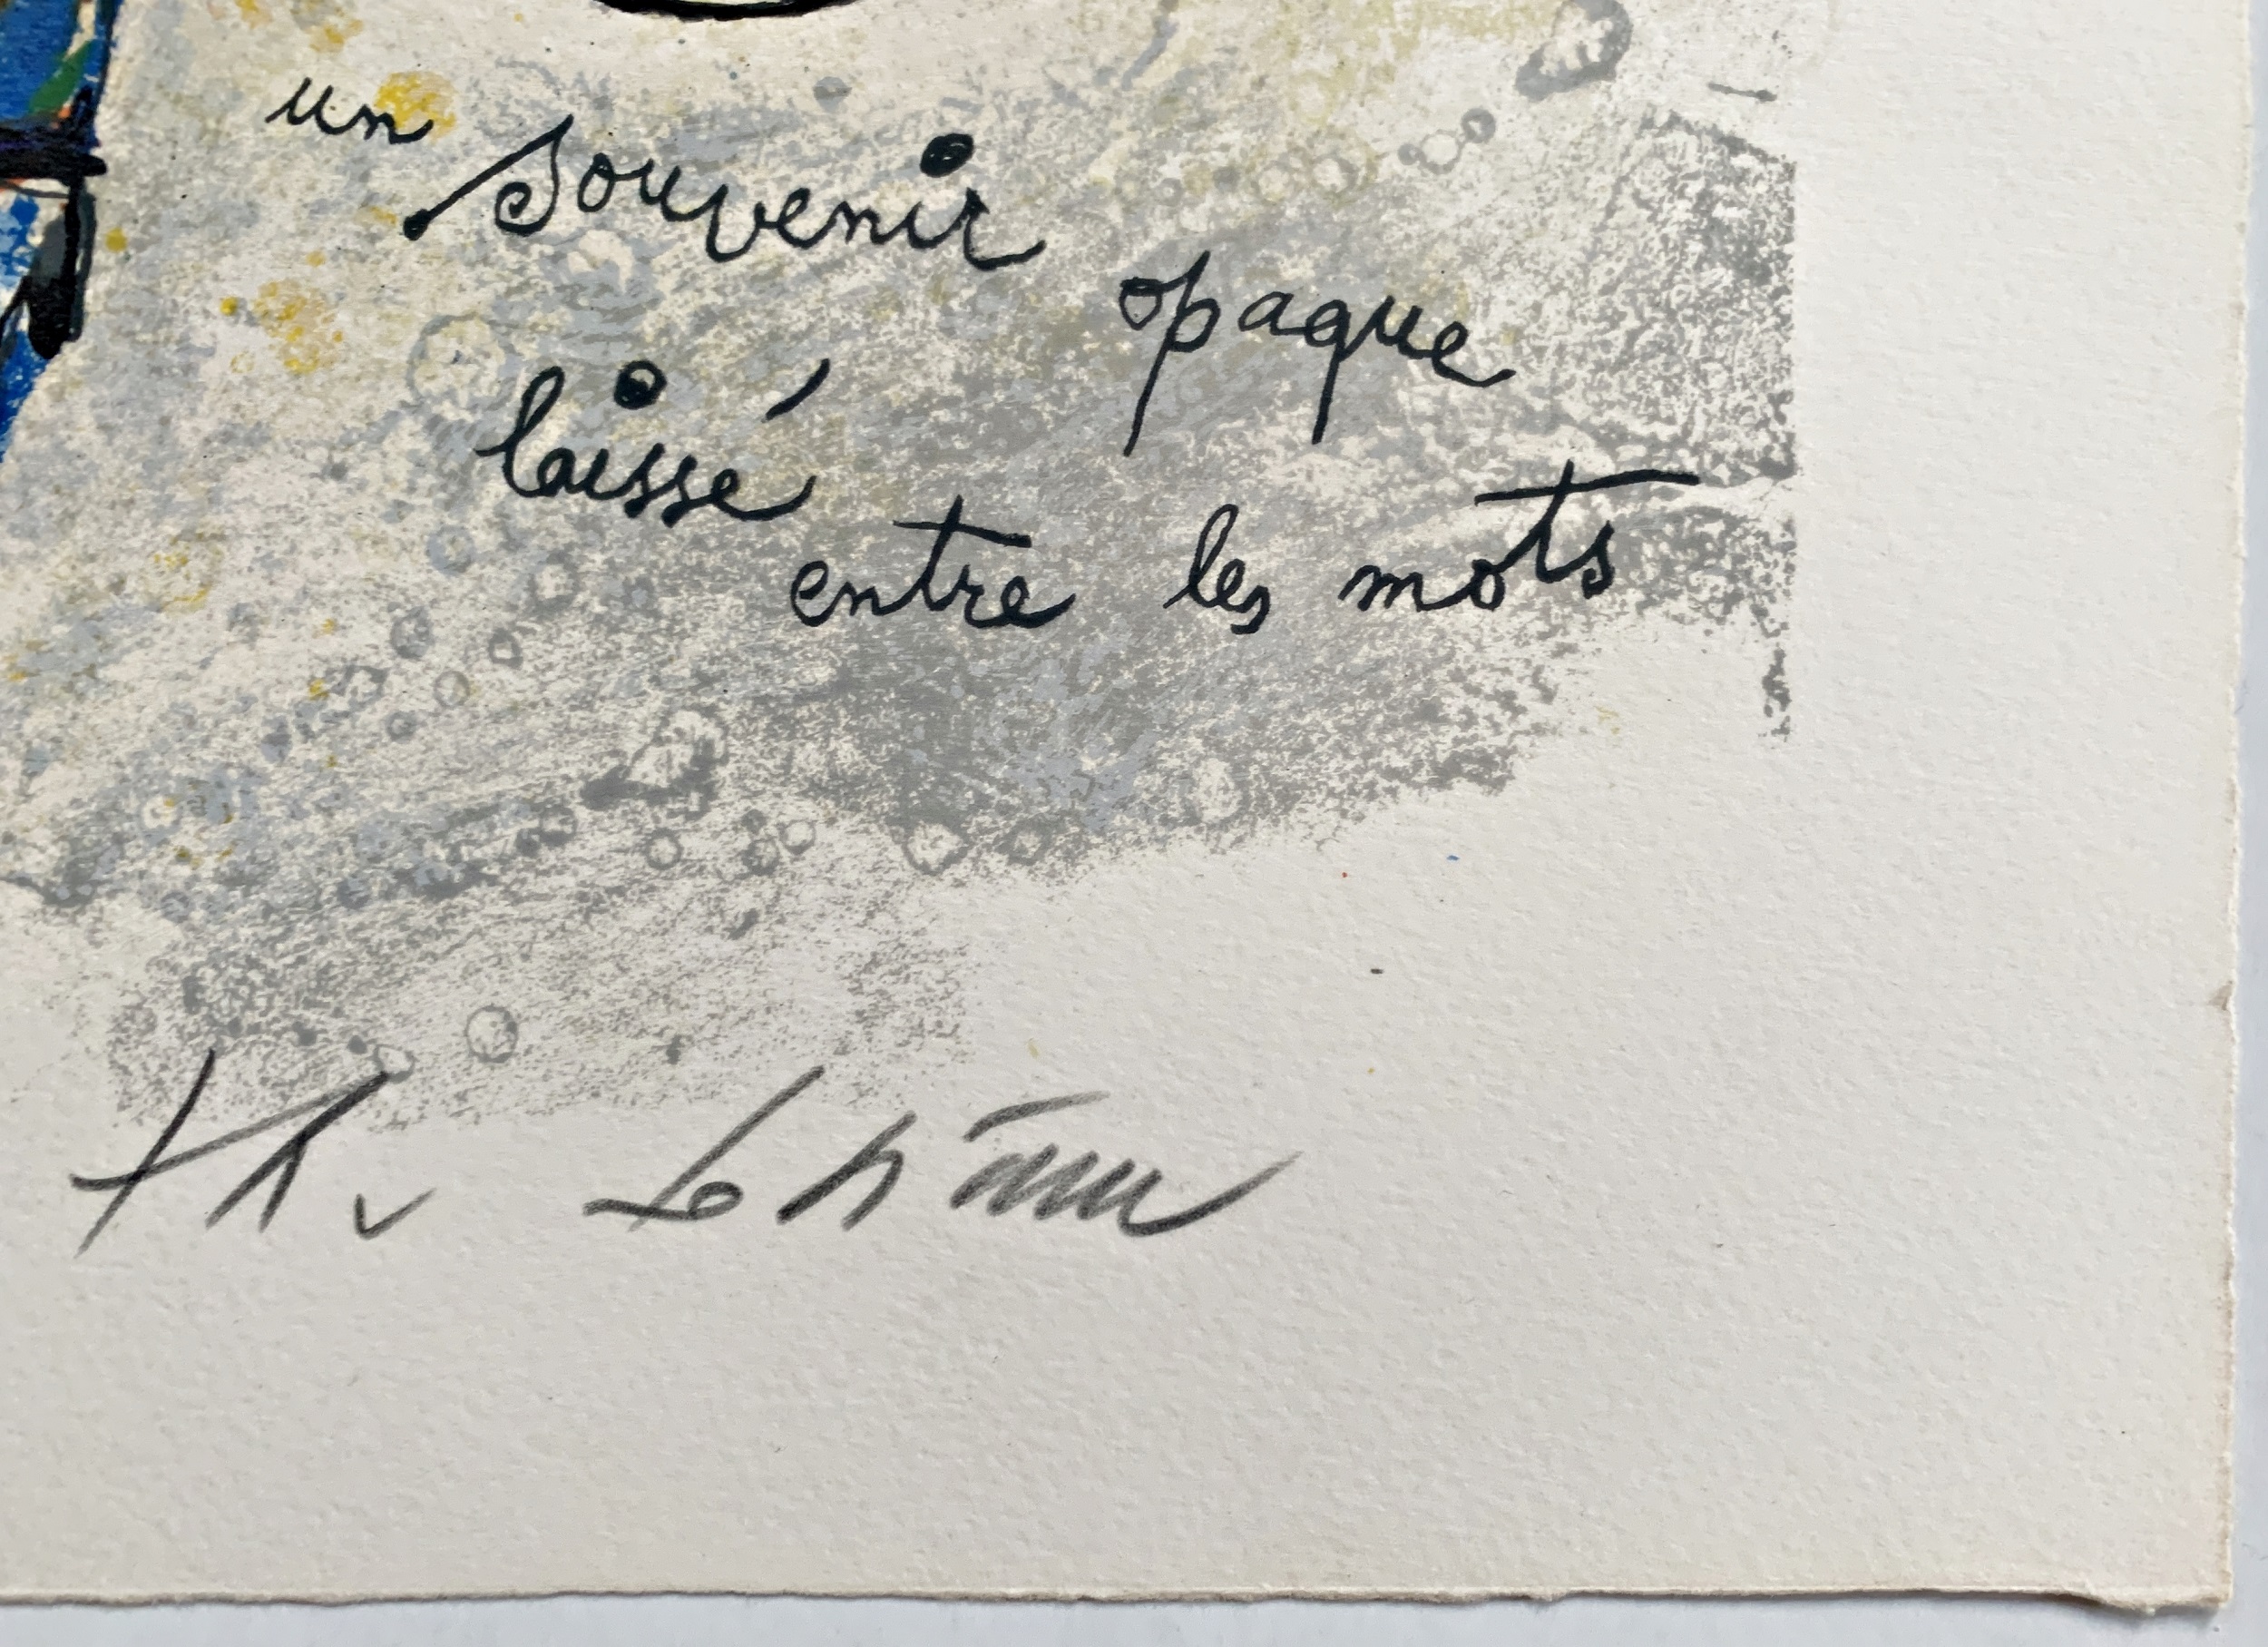 un souvenir opaque
laissé
entre les mots